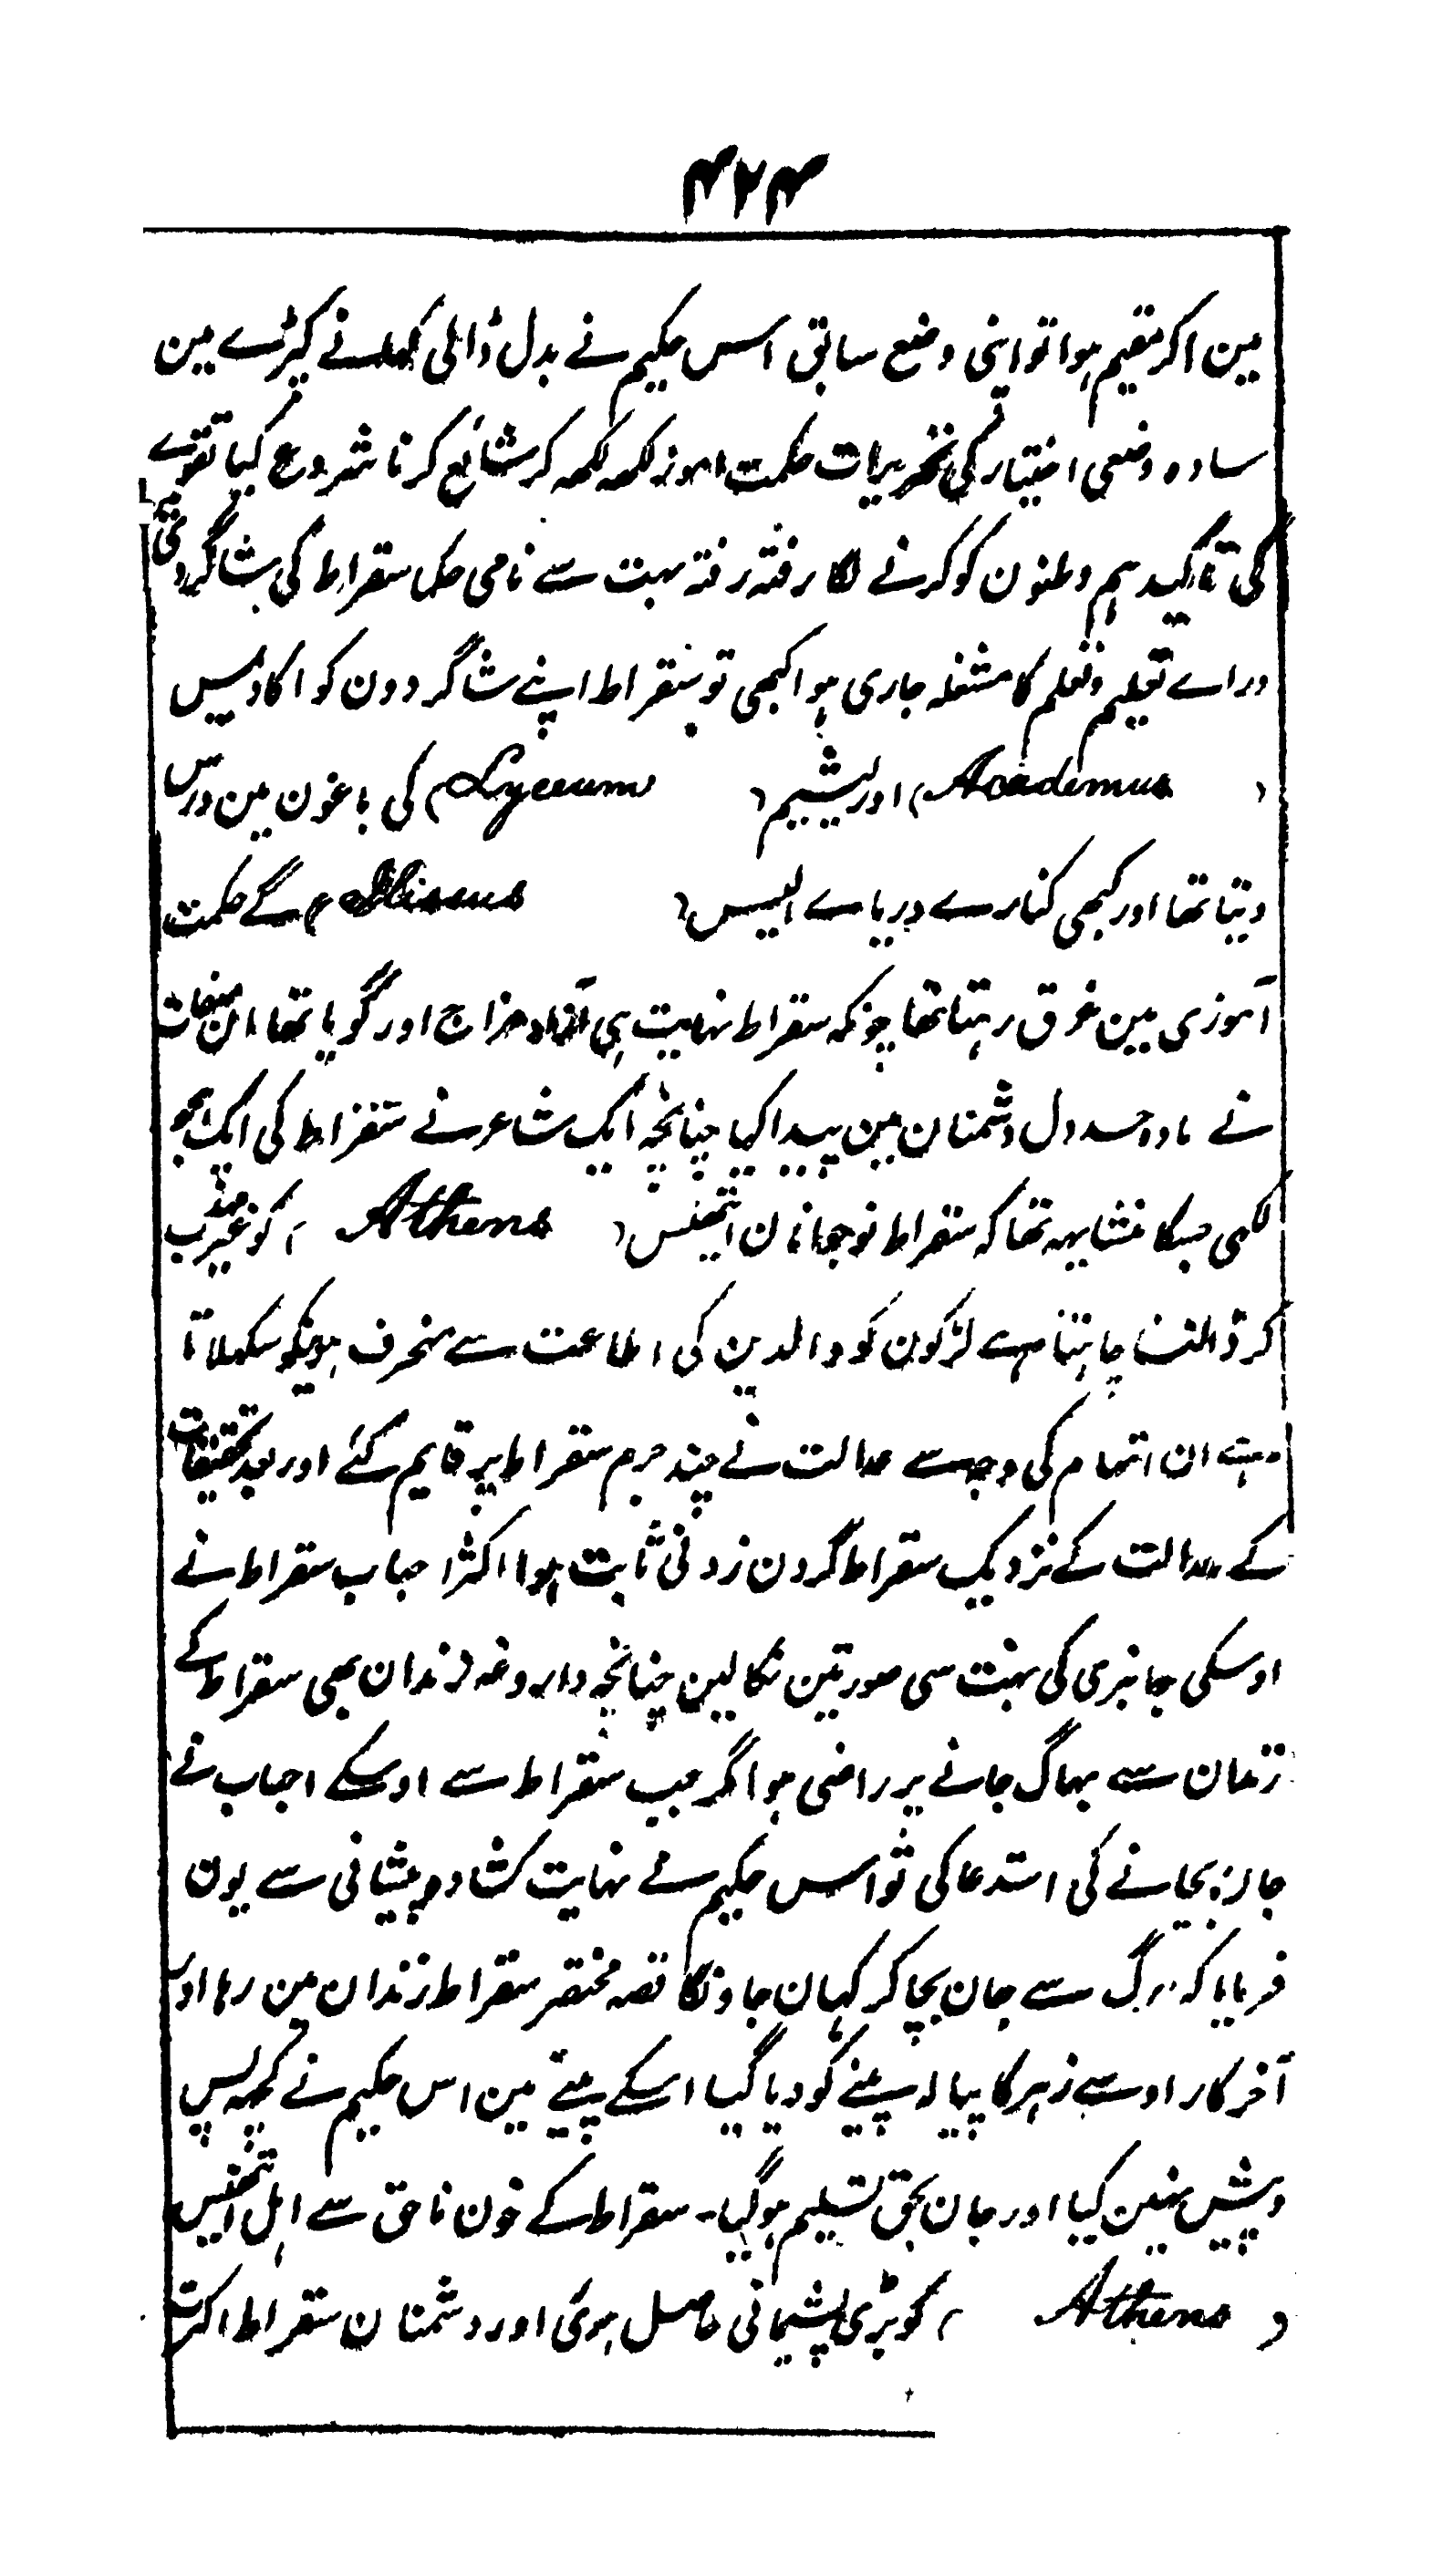 ۴۲۴
مین اکر مقیم ہوا تو اپنی وضع سابق اسس حکیم نے بدل ڈالی کھانے کپڑے مین
سادہ وضعی اختیار کی تحریرات حکمت اموز لکھہ لکھہ کر شائع کرنا شروع کیا تقوے
کی تاکید ہم وطنون کو کرنے لگا رفتہ رفتہ بہت سے نامی حکما سقراط کی شاگردی
دراے تعلیم وتعلم کا مشغلہ جاری ہوا کبھی تو سقراط اپنے شاگردون کو اکادمیس
( Academus ) اور لیشیم ( Lyceum ) کی باغون مین درس
دیتا تھا اور کبھی کنارے دریاے الیسس ( Ilissus ) کے حکمت
آموزی مین غرق رہتا تھا چونکہ سقراط نہایت ہی آزاد مزاج اور گویا تھا ان صفات
نے مادہ حسد دل دشمنان مین پیدا کیا چنانچہ ایک شاعر نے سقراط کی ایک ہجو
لکھی جسکا منشا یہہ تھا کہ سقراط نوجوانان اتھنس ( Athens ) کو غیر مہذب
کر ڈالنا چاہتا ہے لڑکون کو والدین کی اطاعت سے منحرف ہونیکو سکھلاتا
ہے ان اتہام کی وجہ سے عدالت نے چند جرم سقراط پر قایم کئے اور بعد تحقیقات
کے عدالت کے نزدیک سقراط گردن زدنی ثابت ہوا اکثر احباب سقراط نے
اوسکی جانبری کی بہت سی صورتین نکالین چنانچہ داروغہ زندان بھی سقراط کے
زندان سے بھاگ جانے پر راضی ہوا مگر جب سقراط سے اوسکے احباب نے
جان بچانے کی استدعا کی تو اسس حکیم نے نہایت کشادہ پیشانی سے یون
فرمایا کہ مرگ سے جان بچا کر کہان جاونگا قصہ مختصر سقراط زندان مین رہا اور
آخر کار اوسے زہر کا پیالہ پینے کو دیا گیا اسکے پینے مین اس حکیم نے کچہہ پس
و پیش نہین کیا اور جان بحق تسلیم ہوگیا۔ سقراط کے خون ناحق سے اہل اتھنس
( Athens ) کو بڑی پشیمانی حاصل ہوئی اور دشمنان سقراط اکثر